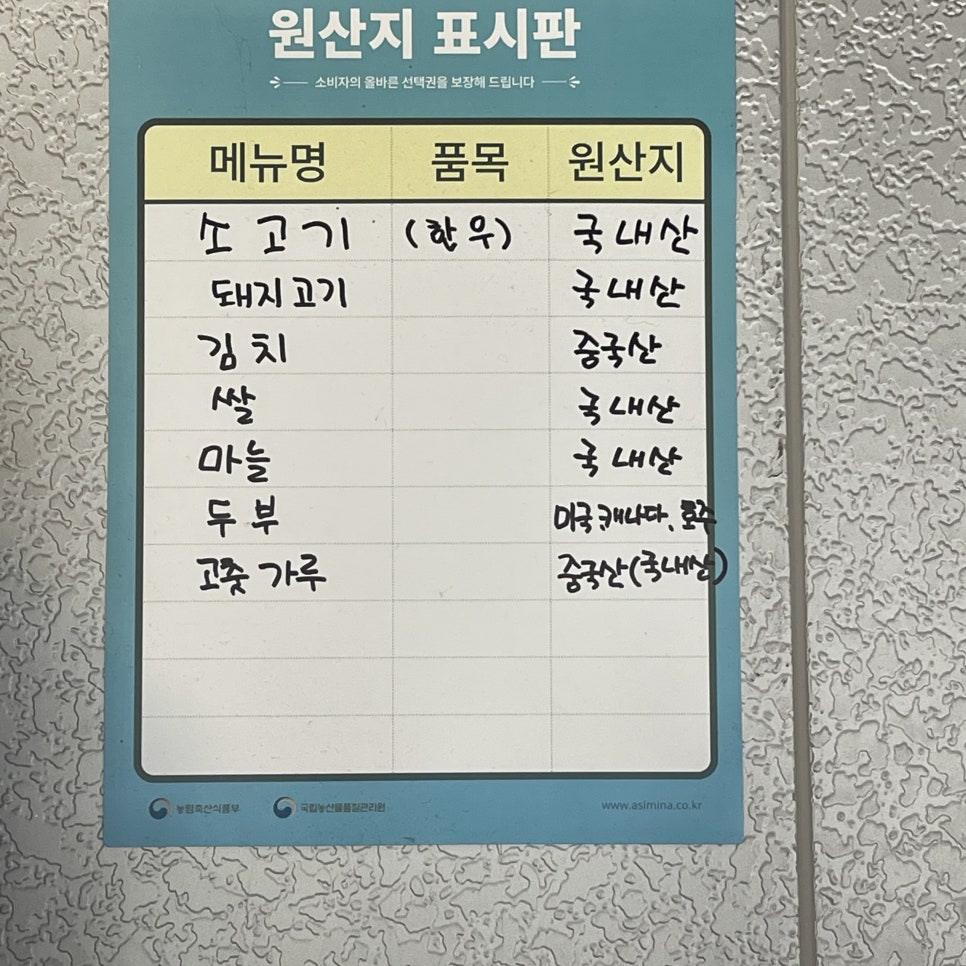 원산지 표시판
소비자의 올바른 선택권을 보장해 드립니다
메뉴명 품목 원산지
소고기 (한우) 국내산
돼지고기 국내산
김치 중국산
쌀 국내산
마늘 국내산
두부 미국,캐나다, 호주
고춧가루 중국산(국내산)
농림축산식품부 국립농산물품질관리원 www.asimina.co.kr